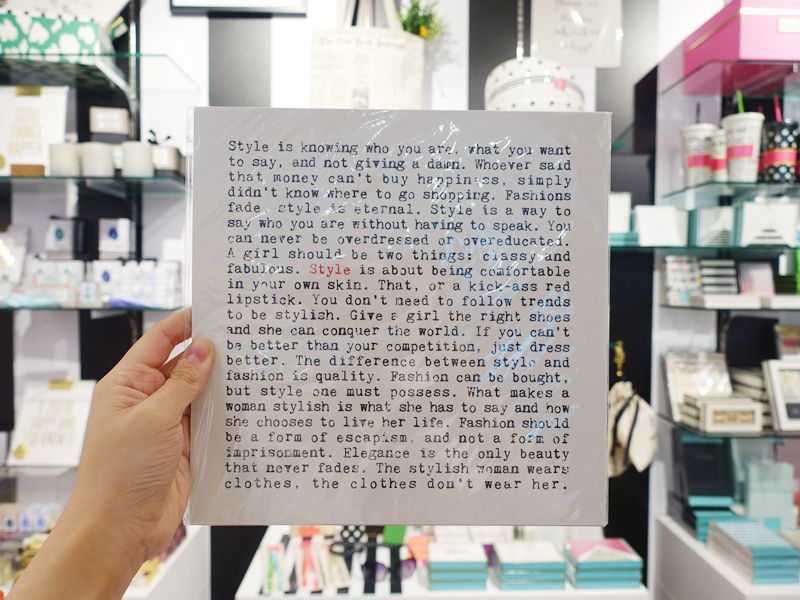 The New York Journal
Style is knowing who you are, what you want
to say, and not giving a damn. Whoever said
that money can't buy happiness, simply
didn't know where to go shopping. Fashions
fade, style is eternal. Style is a way to
say who you are without having to speak. You
can never be overdressed or overeducated.
A girl should be two things: classy and
fabulous. Style is about being comfortable
in your own skin. That, or a kick-ass red
lipstick. You don't need to follow trends
to be stylish. Give a girl the right shoes
and she can conquer the world. If you can't
be better than your competition, just dress
better. The difference between style and
fashion is quality. Fashion can be bought,
but style one must possess. What makes a
woman stylish is what she has to say and how
she chooses to live her life. Fashion should
be a form of escapism, and not a form of
imprisonment. Elegance is the only beauty
that never fades. The stylish woman wears
clothes, the clothes don't wear her.
GOOD
THINGS
HAPPEN